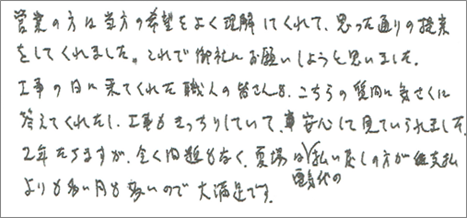 営業の方は当方の希望をよく理解してくれて、思った通りの提案
をしてくれました。これで御社にお願いしようと思いました。
工事の日に来てくれた職人の皆さんも、こちらの質問に気さくに
答えてくれたし、工事もきっちりしていて、安心して見ていられました。
2年たちますが、全く問題もなく、夏場は電気代の払い戻しの方が総支払
よりも多い月も多いので大満足です。